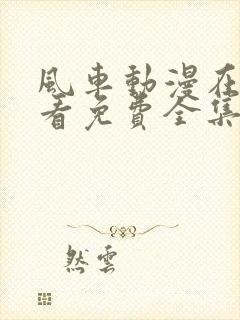 風車動漫在
看免費全集
然雲